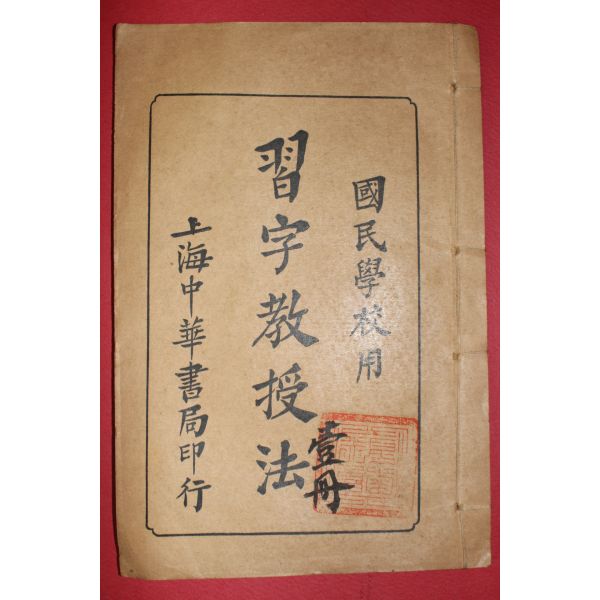 國民學校用
習字教授法
壹冊
上海中華書局印行